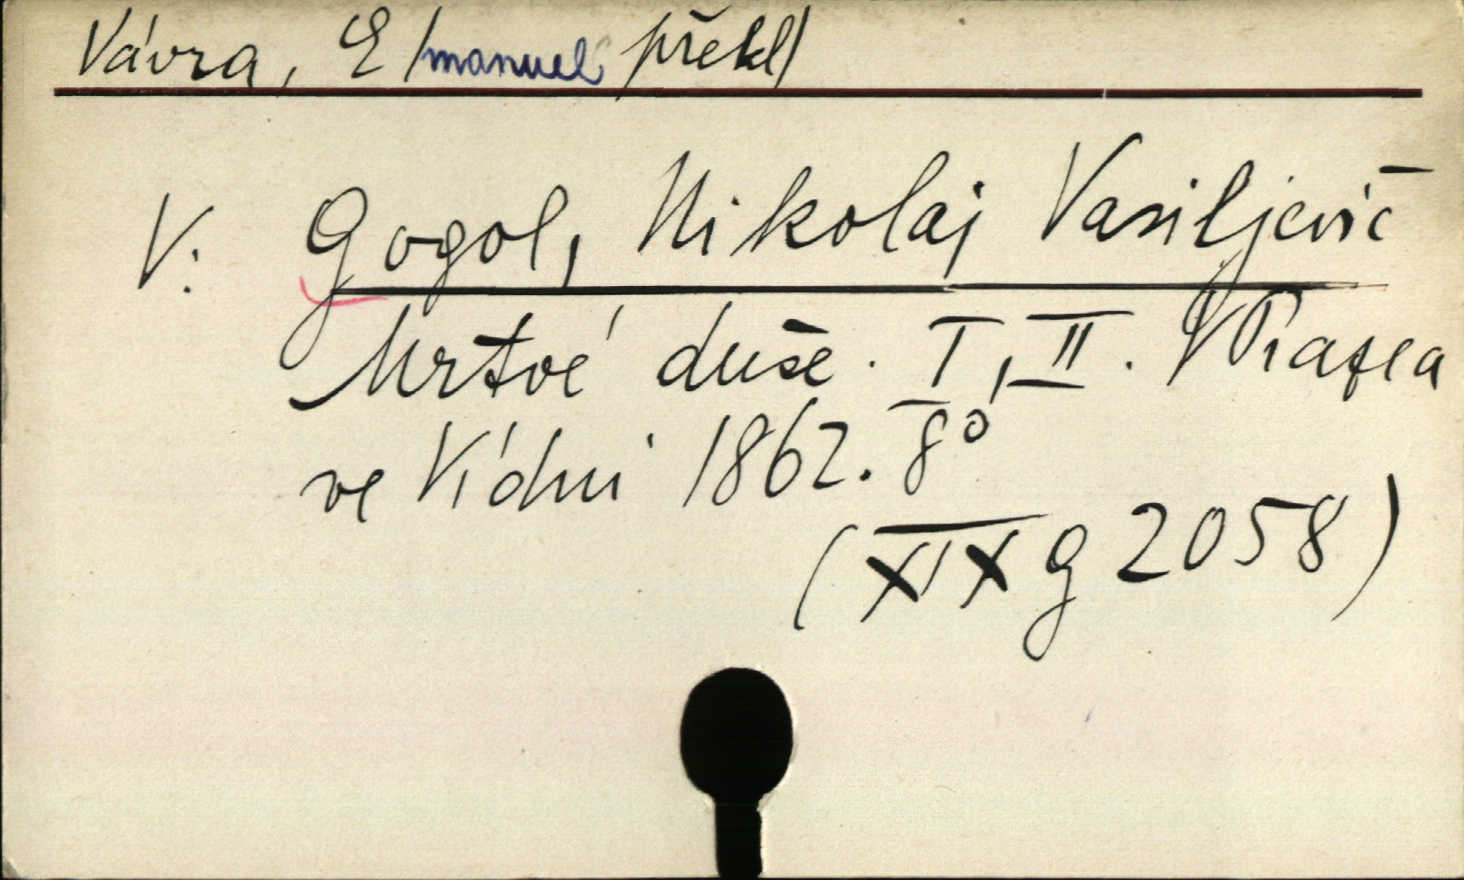 Vávra, E/manuel překl/
V: Gogol, Nikolaj Vasiljevič
Mrtvé duše. I, II. V Praze a
ve Vídni 1862. 8°
(XIX g 2058)